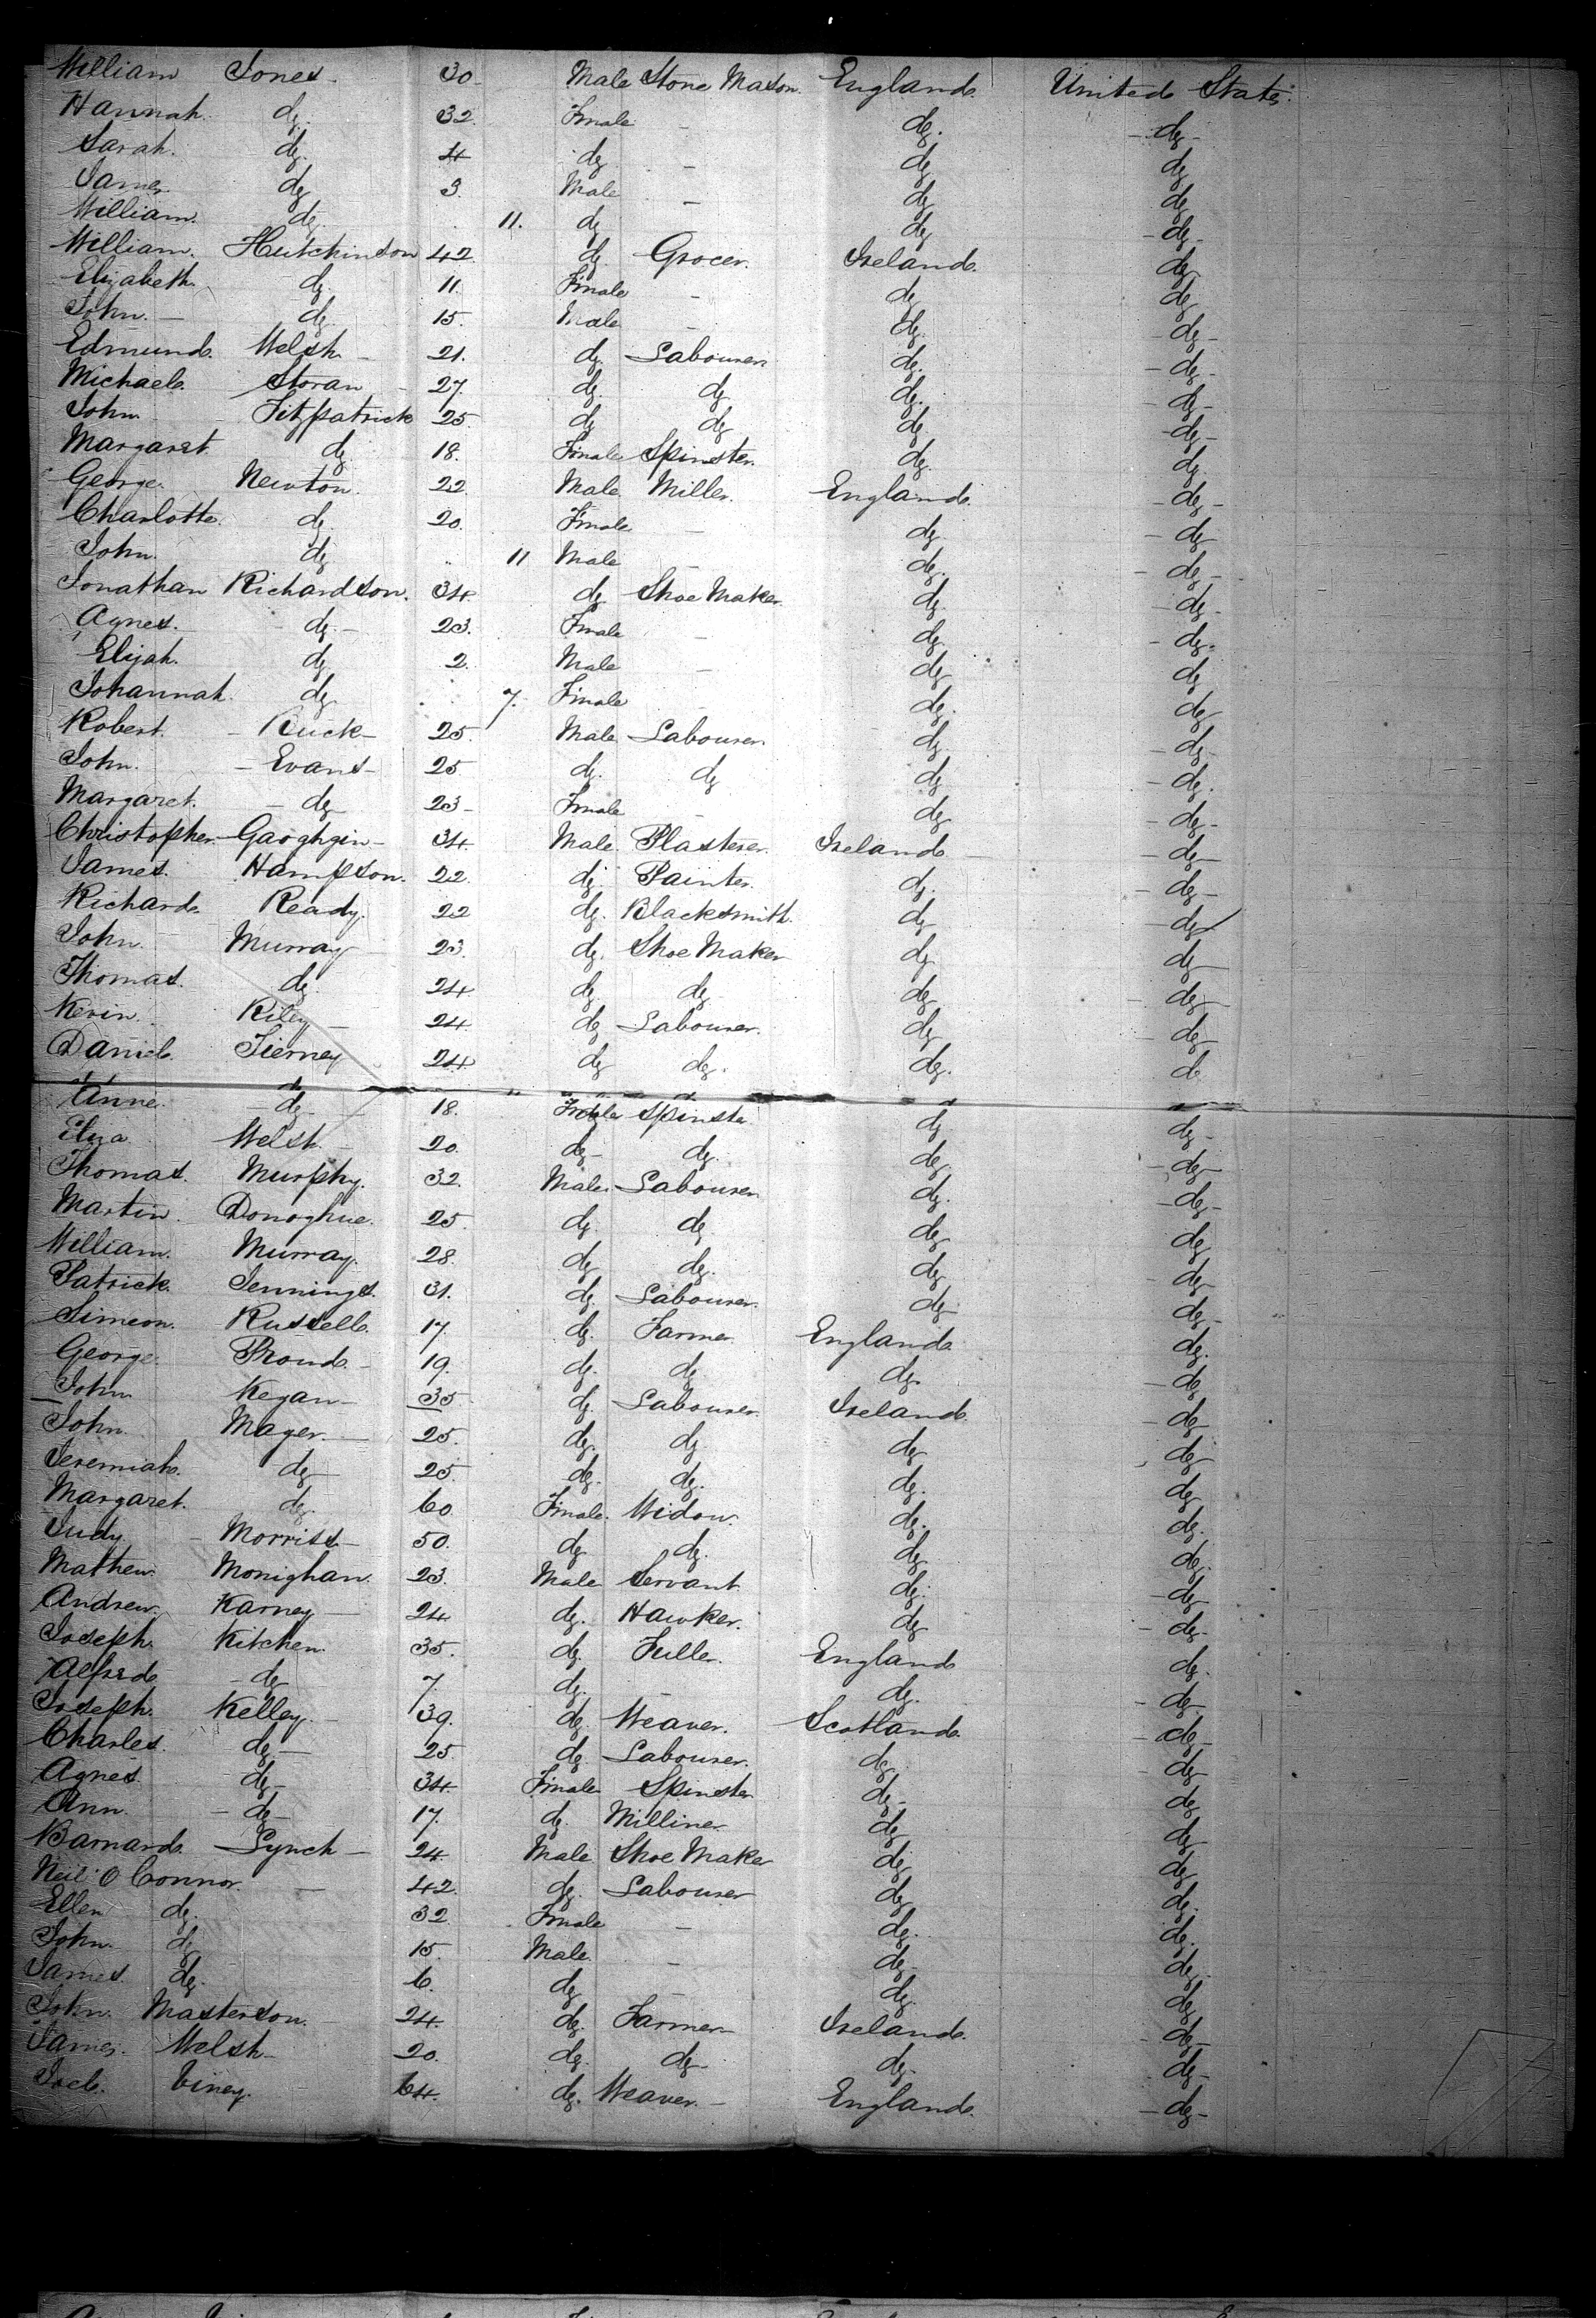 William Jones 30 Male Stone Mason England United States
Hannah do 32 Female - do do
Sarah do 4 do - do do
James do 3 Male - do do
William do 11 do do do
William Hutchinson 42 do Grocer Ireland do
Elizabeth do 11 Female - do do
John do 15 Male - do do
Edmund Welsh 21 do Labourer do do
Michael Storan 27 do do do do
John Fitzpatrick 25 do do do do
Margaret do 18 Female Spinster do do
George Newton 22 Male Miller England do
Charlotte do 20 Female - do do
John do 11 Male - do do
Jonathan Richardson 34 do Shoe Maker do do
Agnes do 23 Female - do do
Elijah do 2 Male - do do
Johannah do 7 Female - do do
Robert Ruck 25 Male Labourer do do
John Evans 25 do do do do
Margaret do 23 Female - do do
Christopher Gaoghgin 34 Male Plasterer Ireland do
James Hampson 22 do Painter do do
Richard Ready 22 do Blacksmith do do
John Murray 23 do Shoe Maker do do
Thomas do 24 do do do do
Kevin Riley 24 do Labourer do do
Daniel Tierney 24 do do do do
Anne do 18 Female Spinster do do
Eliza Welsh 20 do do do do
Thomas Murphy 32 Male Labourer do do
Martin Donoghue 25 do do do do
William Murray 28 do do do do
Patrick Jennings 31 do Labourer do do
Simeon Russell 17 do Farmer England do
George Proud 19 do do do do
John Kegan 35 do Labourer Ireland do
John Mager 25 do do do do
Jeremiah do 25 do do do do
Margaret do 60 Female Widow do do
Judy Morriss 50 do do do do
Mathew Monighan 23 Male Servant do do
Andrew Karney 24 do Hawker do do
Joseph Kitchen 35 do Fuller England do
Alfred do 7 do - do do
Joseph Kelley 39 do Weaver Scotland do
Charles do 25 do Labourer do do
Agnes do 34 Female Spinster do do
Ann do 17 do Milliner do do
Barnard Lynch 24 Male Shoe Maker do do
Neil O Connor 42 do Labourer do do
Ellen do 32 Female - do do
John do 15 Male - do do
James do 6 do do do
John Masterson 24 do Farmer Ireland do
James Welsh 20 do do do do
Viney 64 do Weaver England do